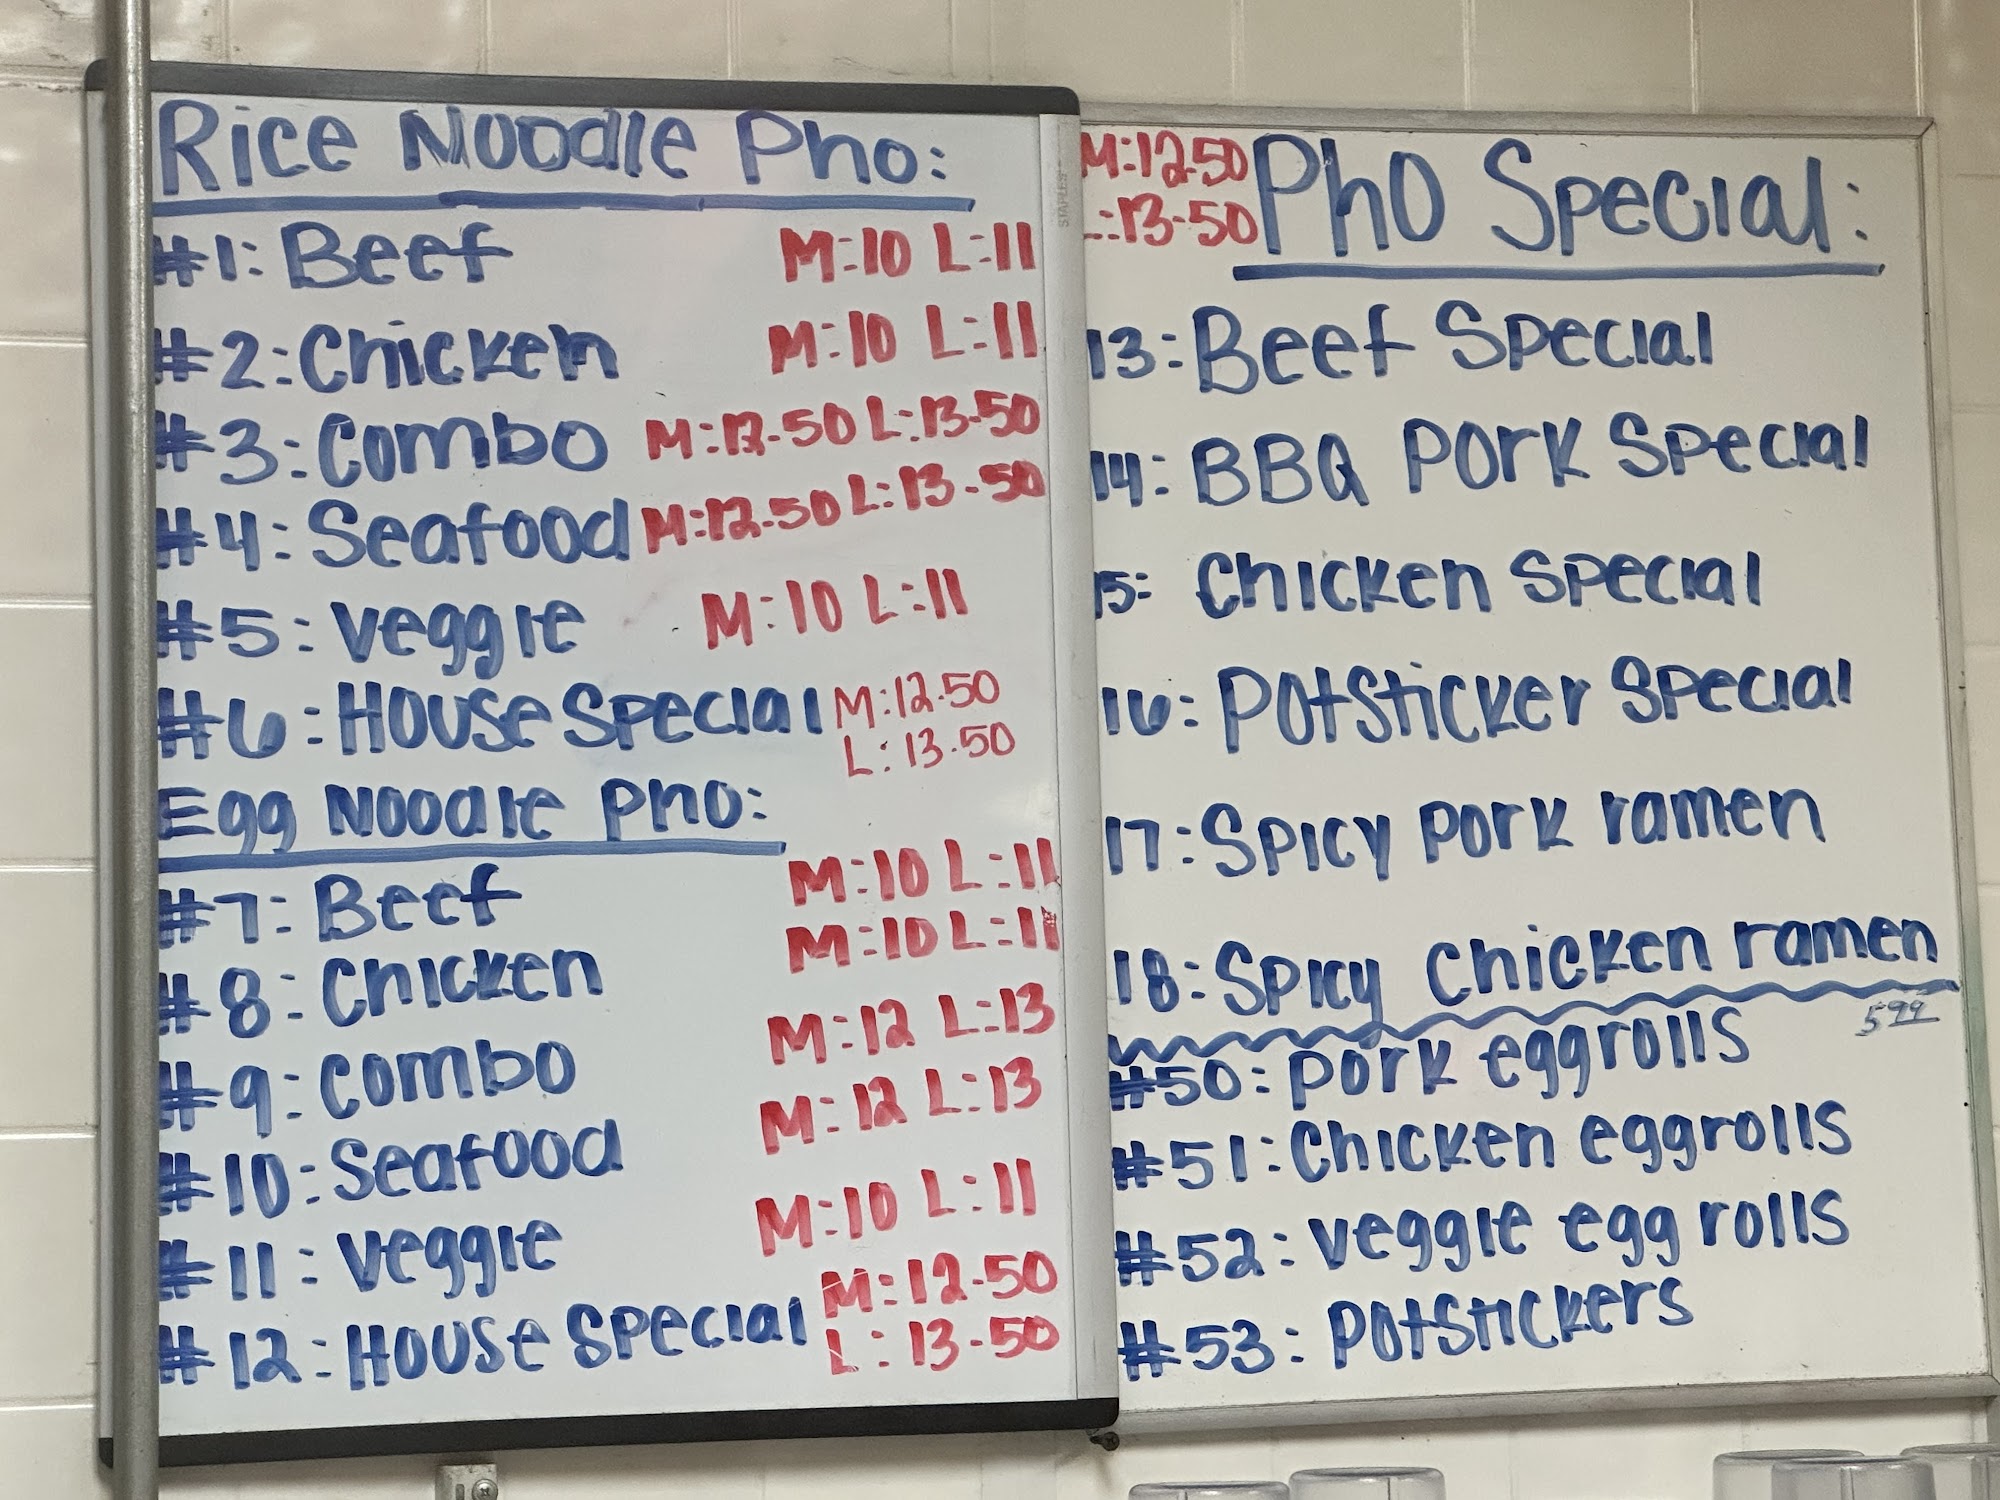 Rice Noodle Pho:
#1: Beef M:10 L:11
#2: Chicken M:10 L:11
#3: Combo M:12.50 L:13.50
#4: Seafood M:12.50 L:13.50
#5: Veggie M:10 L:11
#6: House Special M:12.50
L: 13.50
Egg Noodle Pho:
#7: Beef M:10 L:11
#8: Chicken M:10 L:11
#9: Combo M:12 L:13
#10: Seafood M:12 L:13
#11: Veggie M:10 L:11
#12: House Special M:12.50
L: 13.50
STAPLES
M:12.50
L:13.50
Pho Special:
13: Beef Special
14: BBQ Pork Special
15: Chicken Special
16: Potsticker Special
17: Spicy Pork ramen
18: Spicy Chicken ramen
5 99
#50: Pork eggrolls
#51: Chicken eggrolls
#52: Veggie egg rolls
#53: Potstickers